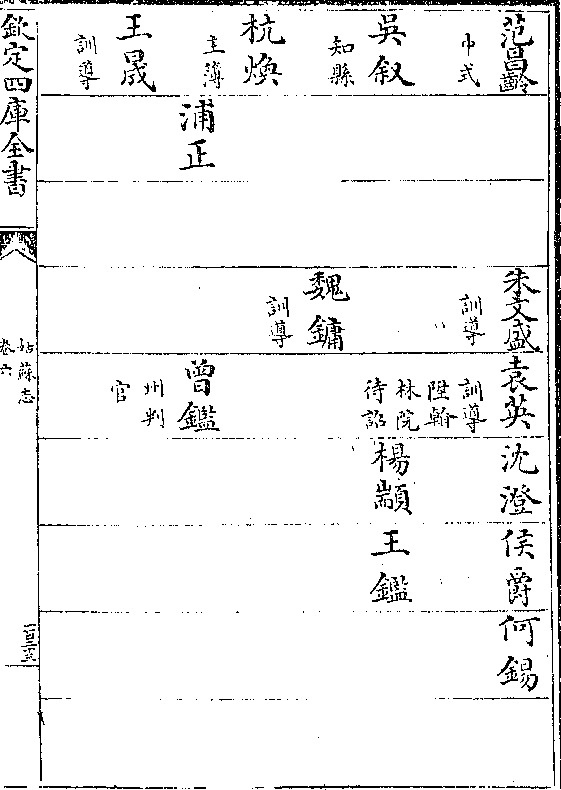 范昌齡
中式
吳叙
知縣
杭煥
主簿
王晟
訓導
浦正
朱文盛
訓導
魏鏞
訓導
袁英
訓導
陞翰
林院
待詔
曾鑑
州判
官
沈澄
楊顓
侯爵
王鑑
何錫
欽定四庫全書
姑蘇志
卷六